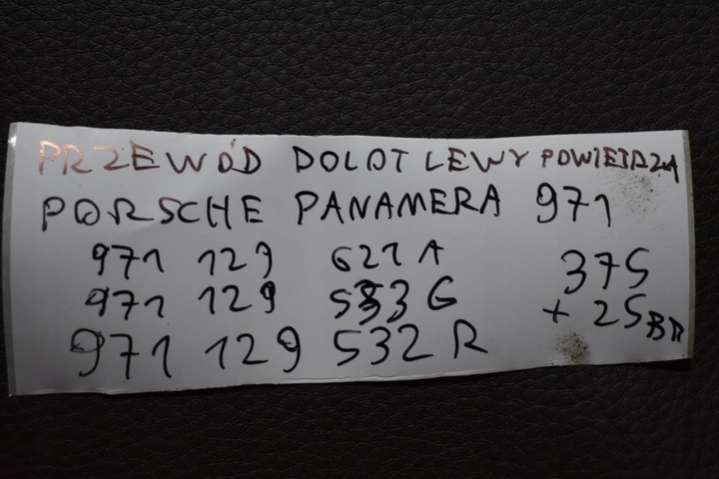 PRZEWÓD DOLOT LEWY POWIETRZA
PORSCHE PANAMERA 971
971 129 621 A 375
971 129 533 G + 25 BR
971 129 532 R